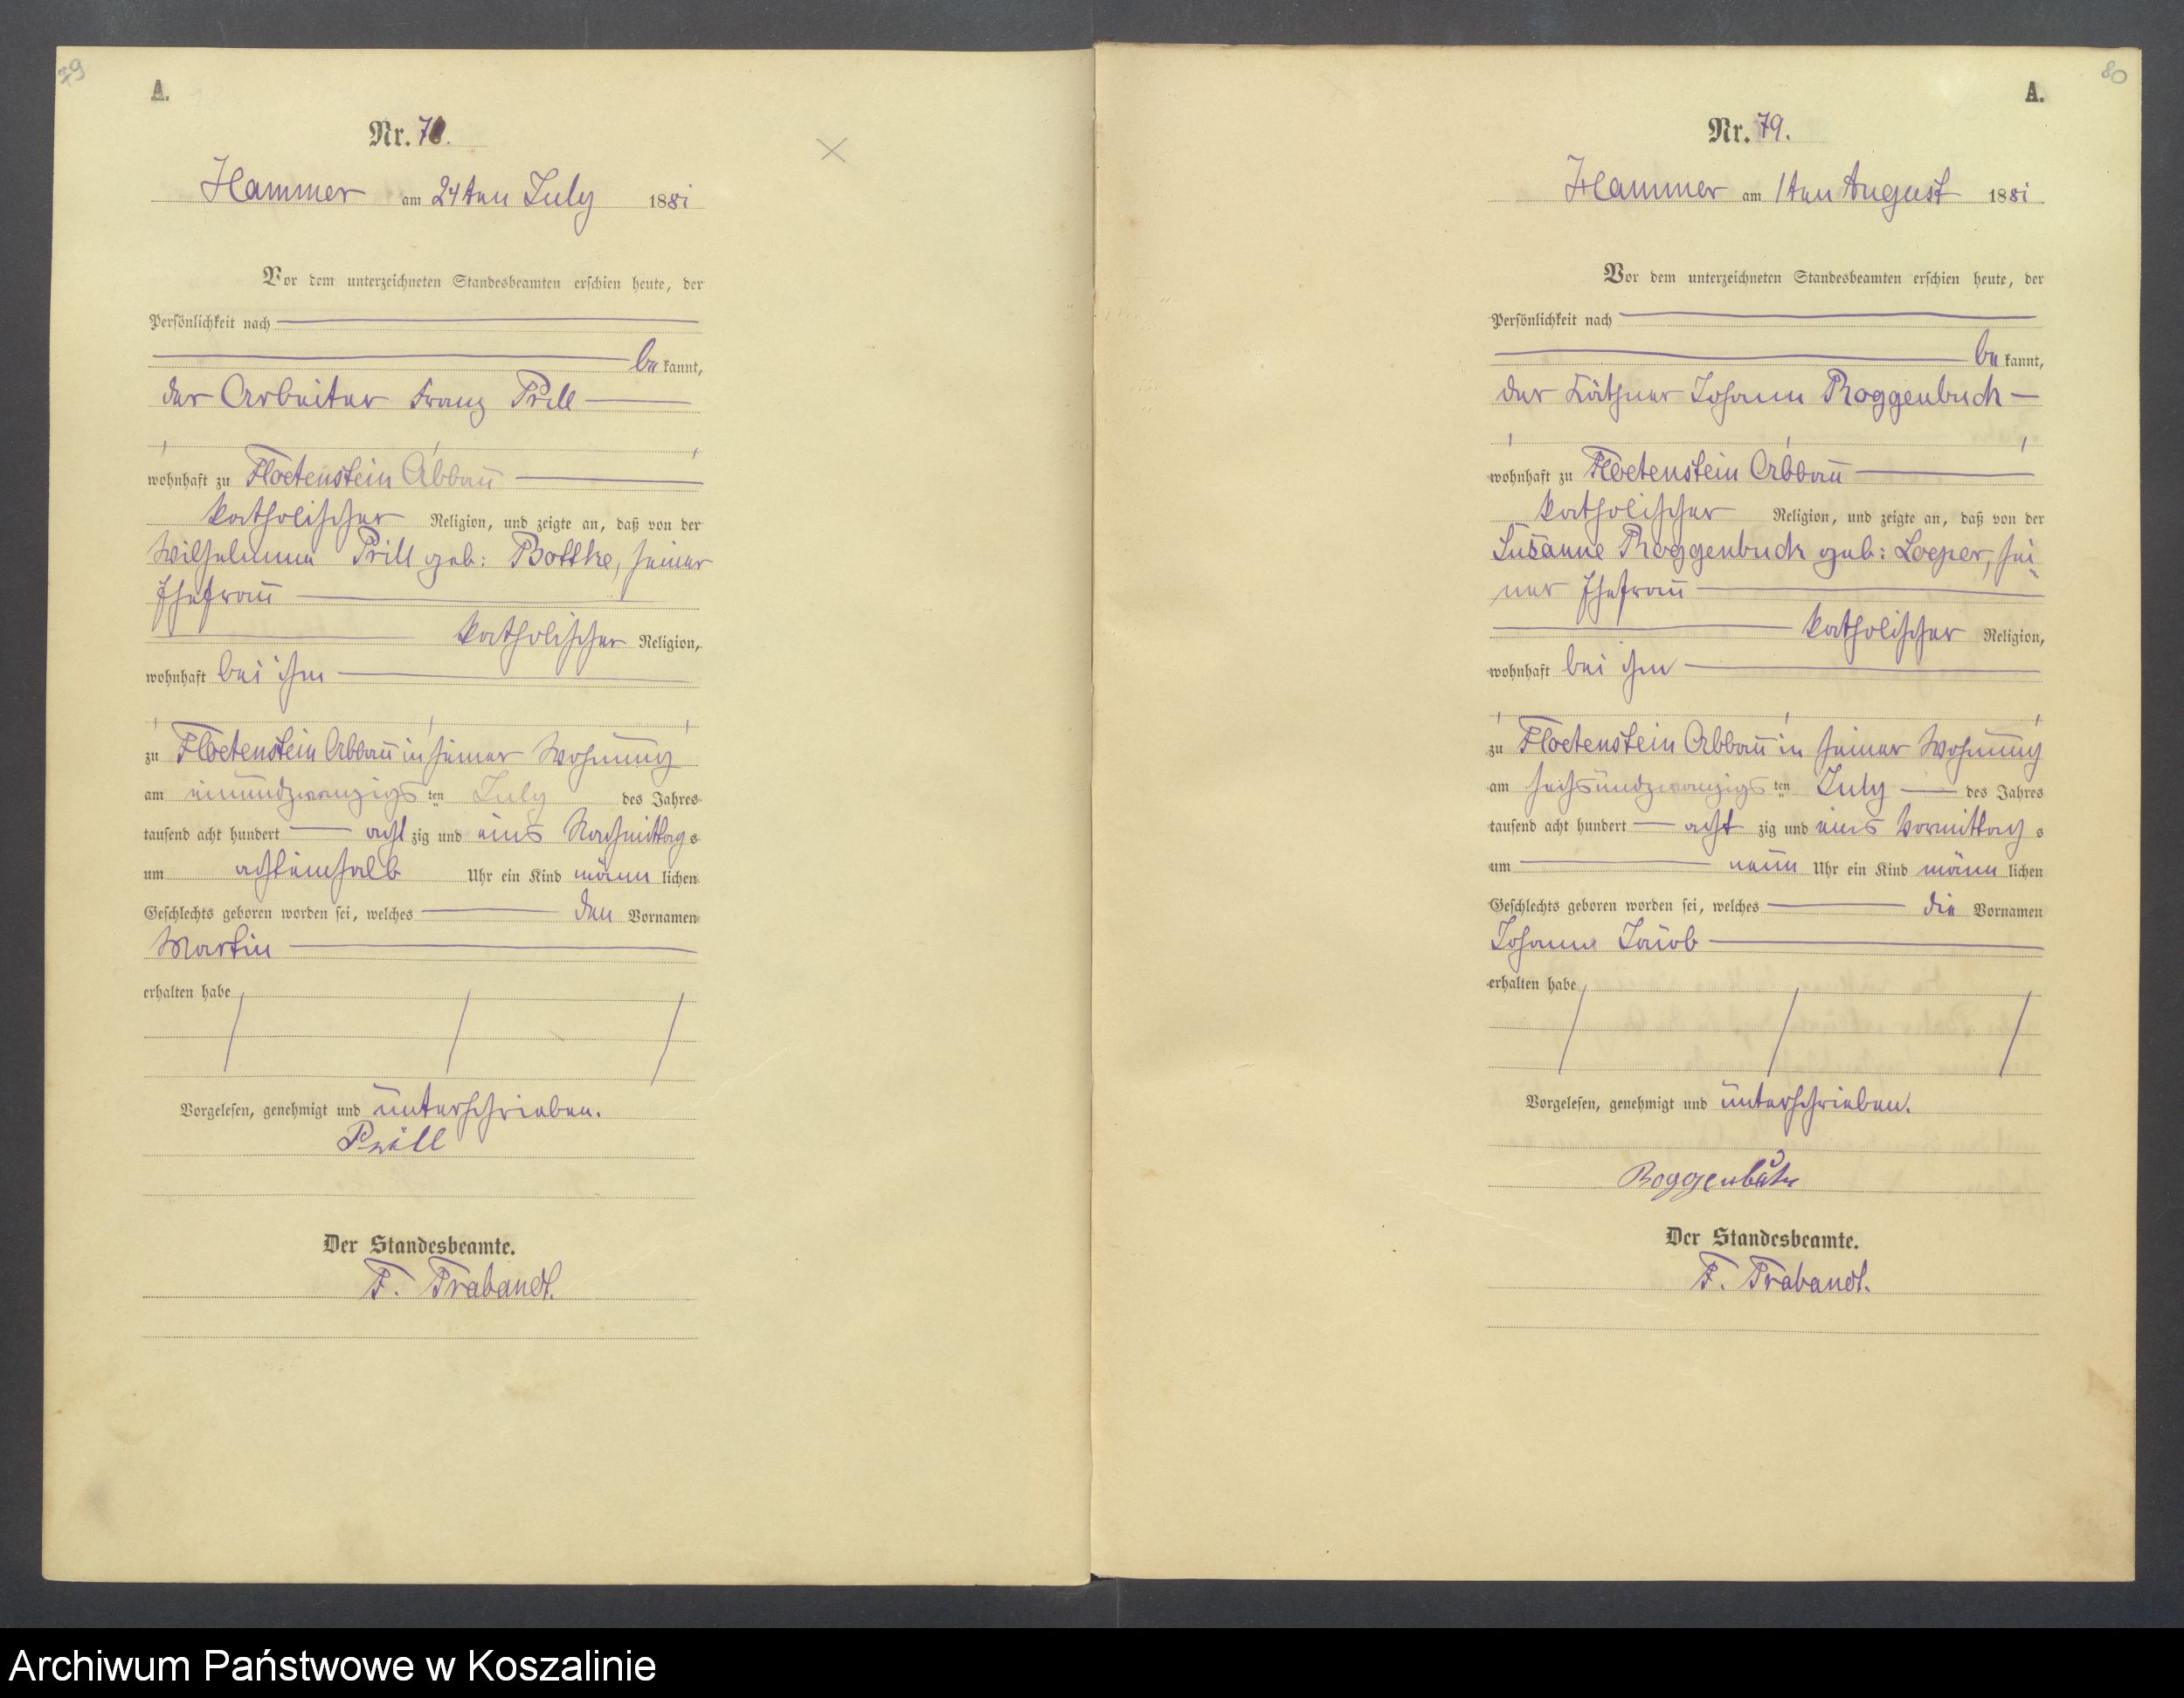 79
A.
Nr. 78.
Hammer am 24ten July 1881
Vor dem unterzeichneten Standesbeamten erschien heute, der
Persönlichkeit nach
be kannt,
der Arbeiter Franz Prill
wohnhaft zu Floetenstein Abbau
katholischer Religion, und zeigte an, daß von der
Wilhelmine Prill geb: Bottke, seiner
Ehefrau
katholischer Religion,
wohnhaft bei ihm
zu Floetenstein Abbau in seiner Wohnung
am einundzwanzigs ten July des Jahres
tausend acht hundert acht zig und eins Nachmittag s
um achteinhalb Uhr ein Kind männ lichen
Geschlechts geboren worden sei, welches den Vornamen
Martin
erhalten habe
Vorgelesen, genehmigt und unterschrieben.
Prill
Der Standesbeamte.
F. Trabandt.
80
A.
Nr. 79.
Hammer am 1ten August 1881
Vor dem unterzeichneten Standesbeamten erschien heute, der
Persönlichkeit nach
be kannt,
der Käthner Johann Roggenbuck
wohnhaft zu Floetenstein Abbau
katholischer Religion, und zeigte an, daß von der
Susanne Roggenbuck geb: Loeper, sei
ner Ehefrau
katholischer Religion,
wohnhaft bei ihm
zu Floetenstein Abbau in seiner Wohnung
am sechsundzwanzigs ten July des Jahres
tausend acht hundert acht zig und eins Vormittag s
um neun Uhr ein Kind männ lichen
Geschlechts geboren worden sei, welches die Vornamen
Johann Jacob
erhalten habe
Vorgelesen, genehmigt und unterschrieben.
Roggenbuk
Der Standesbeamte.
F. Trabandt.
Archiwum Państwowe w Koszalinie